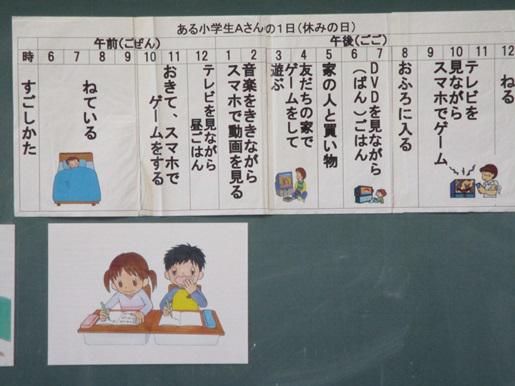 ある小学生Aさんの1日(休みの日)
午前(ごぜん)
午後(ごご)
時 6 7 8 9 10 11 12 1 2 3 4 5 6 7 8 9 10 11 12
すごしかた
ねている
おきて、スマホで
ゲームをする
テレビを見ながら
昼ごはん
音楽をききながら
スマホで動画を見る
友だちの家で
ゲームをして
遊ぶ
家の人と買い物
DVDを見ながら
(ばん)ごはん
おふろに入る
テレビを
見ながら
スマホでゲーム
ねる